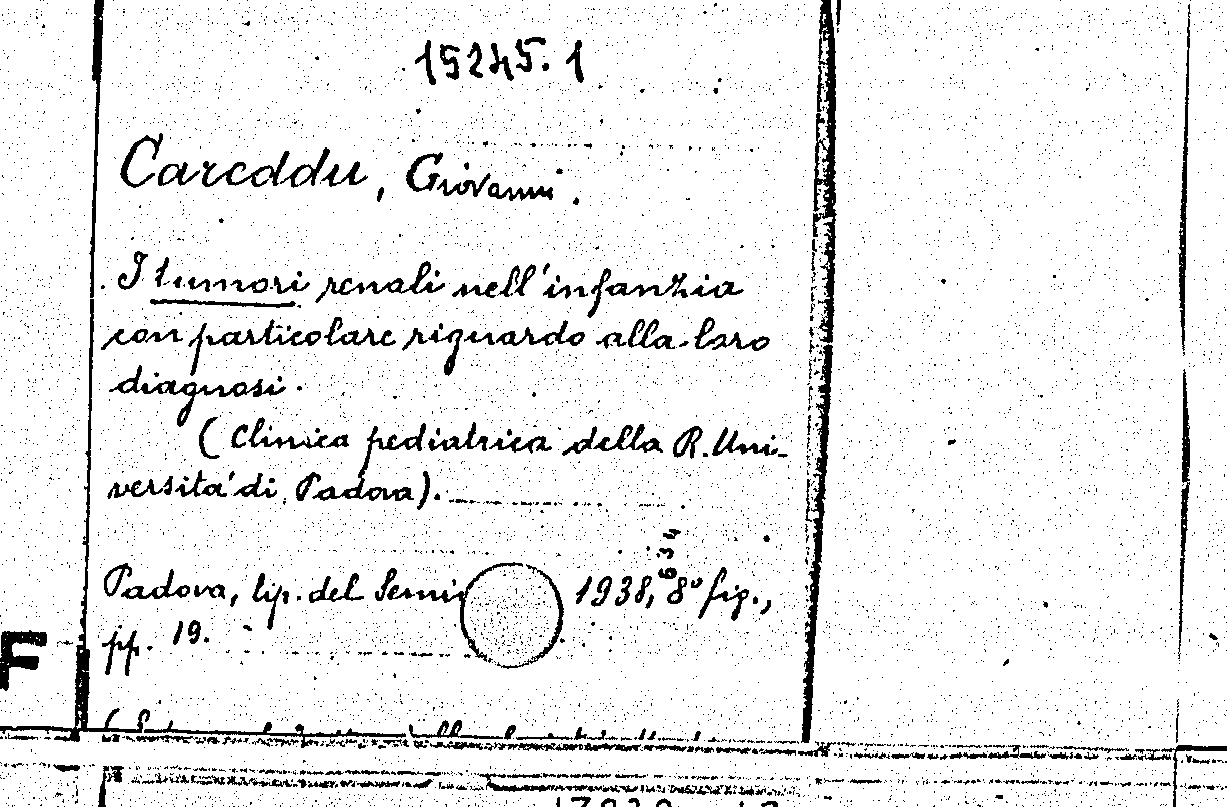 15245.1
Careddu, Giovanni.
I tumori renali nell'infanzia
con particolare riguardo alla loro
diagnosi.
(Clinica pediatrica della R. Uni-
versità di Padova).
634
Padova, tip. del Semi 1938, 8° fig.,
pp. 19.
F